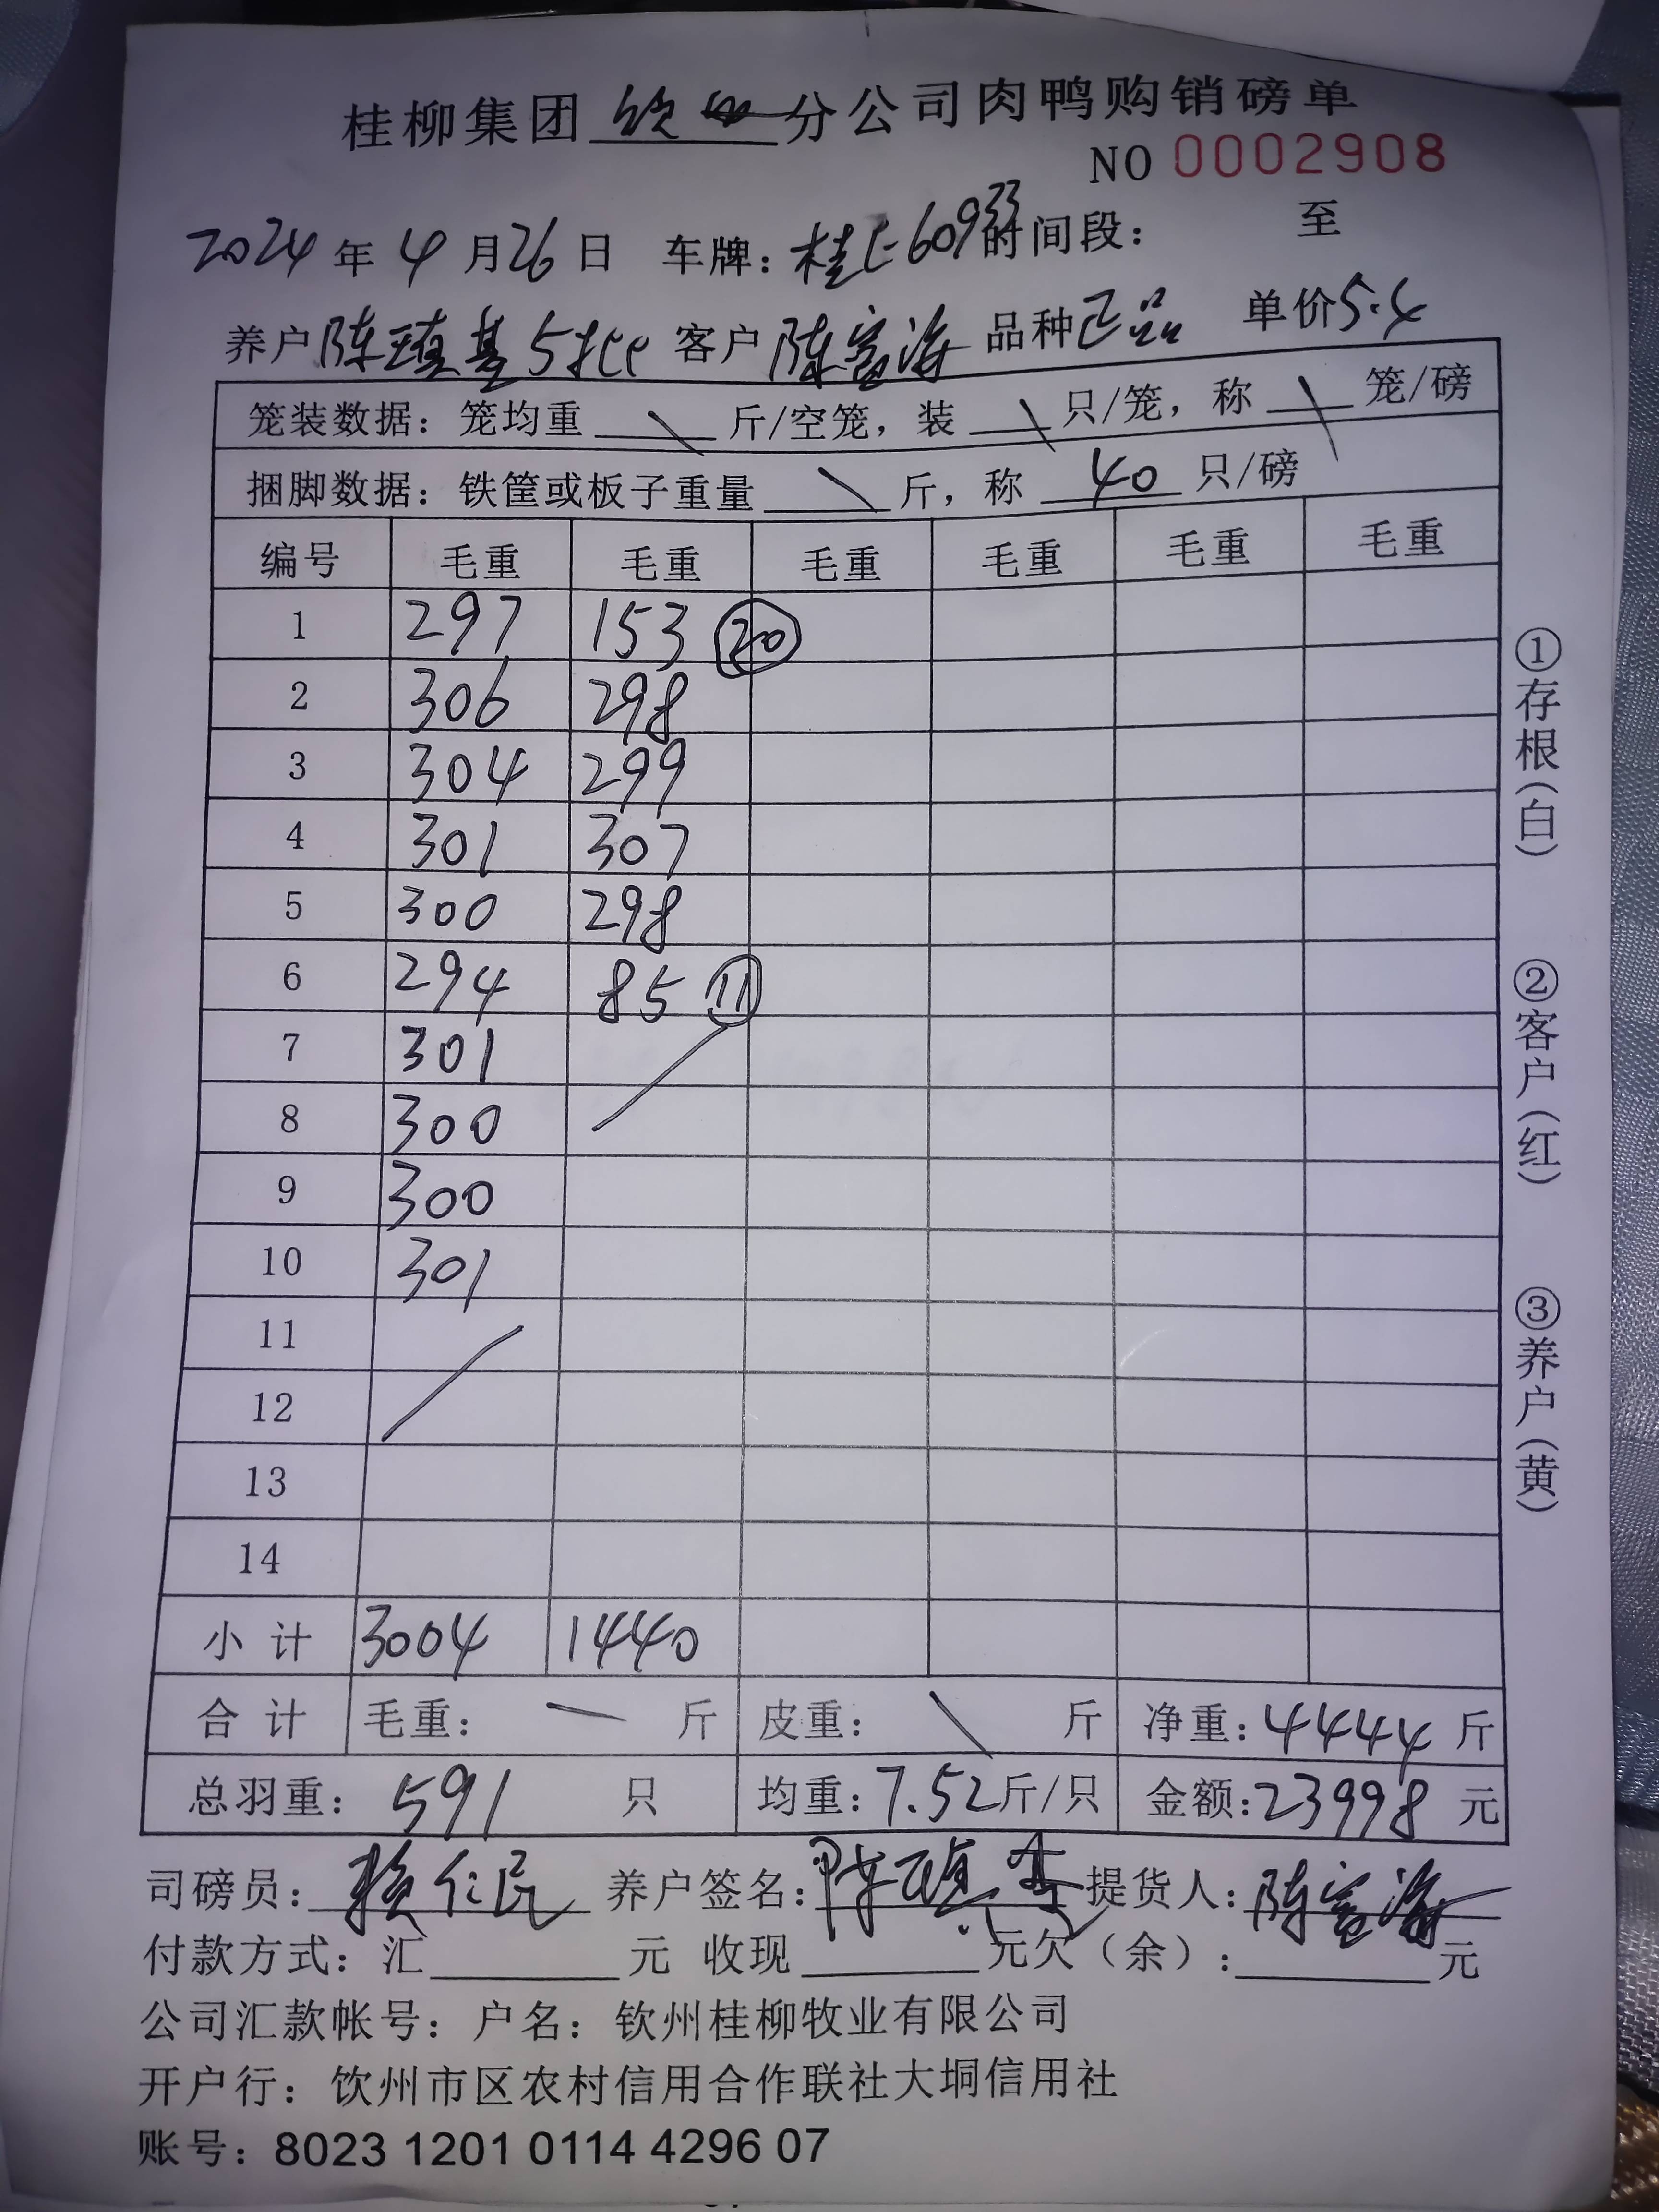 桂柳集团 钦州 分公司肉鸭购销磅单
NO 0002908
2024 年 4 月 26 日 车牌: 桂E60933 时间段: 至
养户 陈瑱基5批 客户 陈富海 品种 正品 单价 5.4
笼装数据: 笼均重 \ 斤/空笼, 装 \ 只/笼, 称 \ 笼/磅
捆脚数据: 铁筐或板子重量 \ 斤, 称 40 只/磅
编号 毛重 毛重 毛重 毛重 毛重 毛重
1 297 153 ⑳
2 306 298
3 304 299
4 301 307
5 300 298
6 294 85 ⑪
7 301
8 300
9 300
10 301
11
12
13
14
小计 3004 1440
合计 毛重: 斤 皮重: \ 斤 净重: 4444 斤
总羽重: 591 只 均重: 7.52 斤/只 金额: 23998 元
司磅员: 赖仁民 养户签名: 陈瑱基 提货人: 陈富海
付款方式: 汇 元 收现 元欠(余): 元
公司汇款帐号: 户名: 钦州桂柳牧业有限公司
开户行: 钦州市区农村信用合作联社大垌信用社
账号: 8023 1201 0114 4296 07
①存根(白)
②客户(红)
③养户(黄)